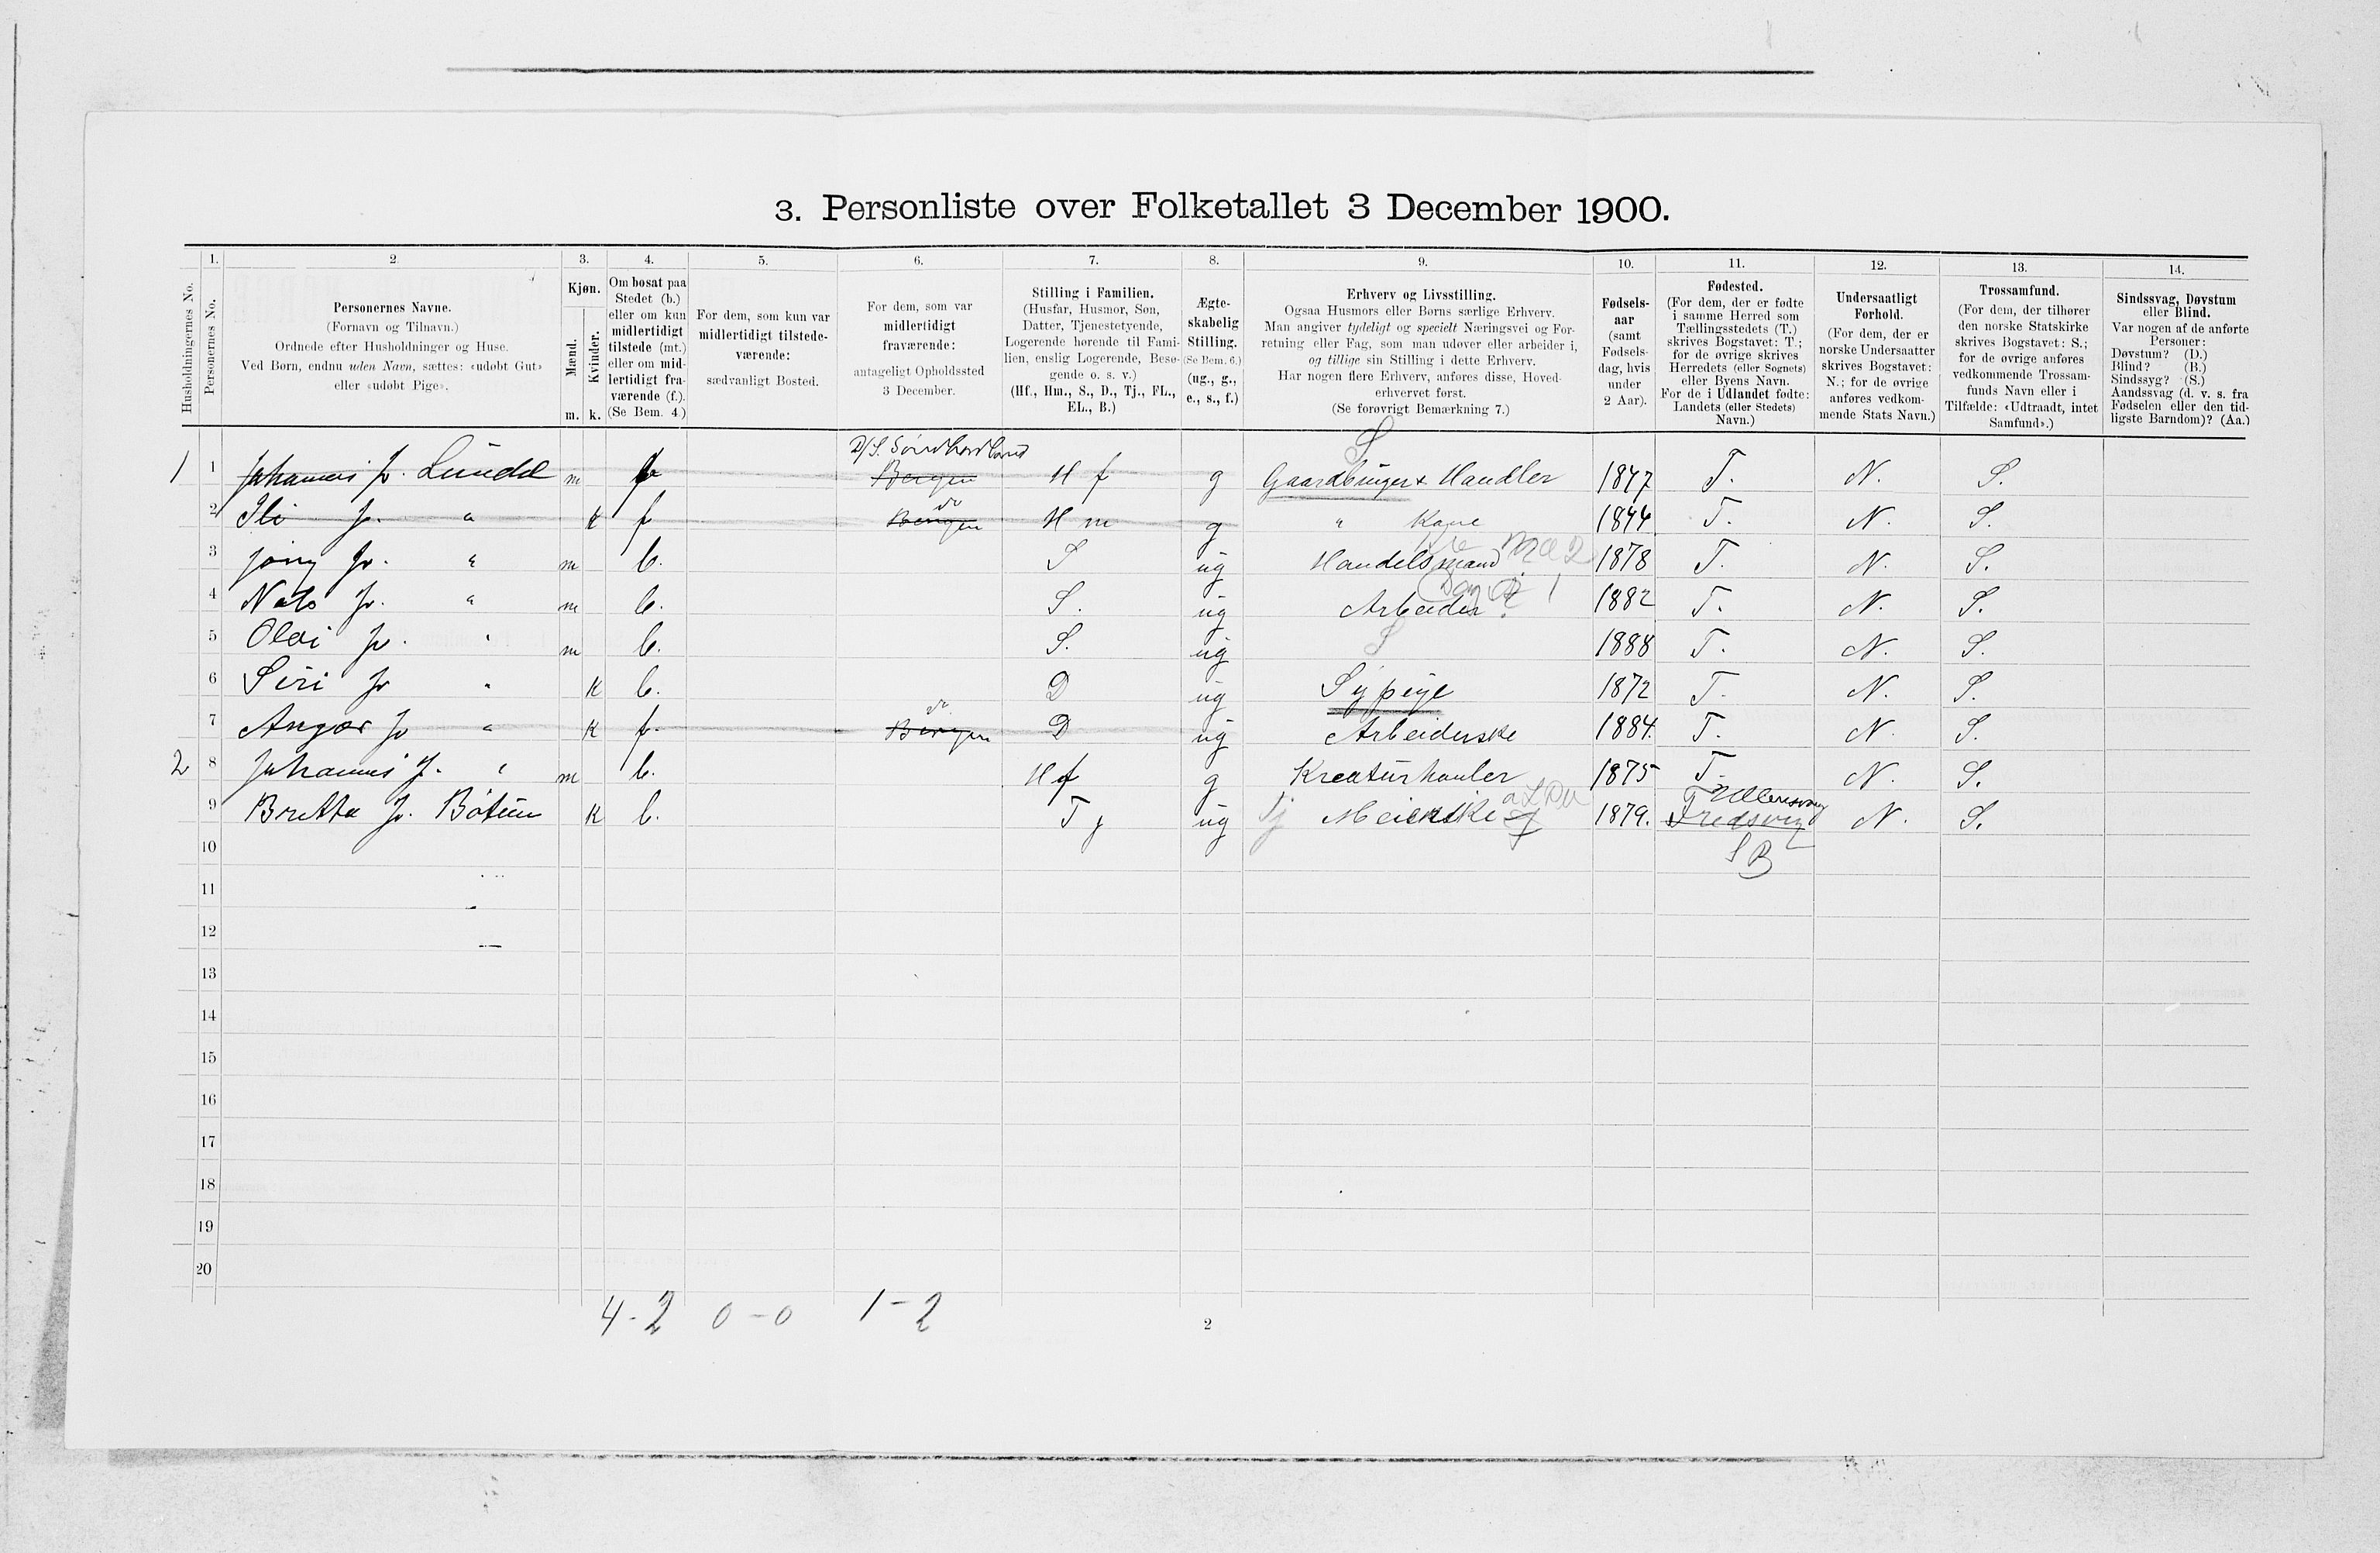 3. Personliste over Folketallet 3 December 1900.
Husholdningernes No.
1. Personernes No.
2. Personernes Navne.
(Fornavn og Tilnavn.)
Ordnede efter Husholdninger og Huse.
Ved Børn, endnu uden Navn, sættes: «udøbt Gut»
eller «udøbt Pige».
3. Kjøn.
Mænd. m.
Kvinder. k.
4. Om bosat paa
Stedet (b.)
eller om kun
midlertidigt
tilstede (mt.)
eller om mid-
lertidigt fra-
værende (f.).
(Se Bem. 4.)
5. For dem, som kun var
midlertidigt tilstede-
værende:
sædvanligt Bosted.
6. For dem, som var
midlertidigt
fraværende:
antageligt Opholdssted
3 December.
7. Stilling i Familien.
(Husfar, Husmor, Søn,
Datter, Tjenestetyende,
Logerende hørende til Fami-
lien, enslig Logerende, Besø-
gende o. s. v.)
(Hf., Hm., S., D., Tj., FL.,
EL., B.)
8. Ægte-
skabelig
Stilling.
(Se Bem. 6.)
(ug., g.,
e., s., f.)
9. Erhverv og Livsstilling.
Ogsaa Husmors eller Børns særlige Erhverv.
Man angiver tydeligt og specielt Næringsvei og For-
retning eller Fag, som man udøver eller arbeider i,
og tillige sin Stilling i dette Erhverv.
Har nogen flere Erhverv, anføres disse, Hoved-
erhvervet først.
(Se forøvrigt Bemærkning 7.)
10. Fødsels-
aar
(samt
Fødsels-
dag, hvis
under
2 Aar).
11. Fødested.
(For dem, der er fødte
i samme Herred som
Tællingsstedets (T.)
skrives Bogstavet: T.;
for de øvrige skrives
Herredets (eller Sognets)
eller Byens Navn.
For de i Udlandet fødte:
Landets (eller Stedets)
Navn.)
12. Undersaatligt
Forhold.
(For dem, der er
norske Undersaatter
skrives Bogstavet:
N.; for de øvrige
anføres vedkom-
mende Stats Navn.)
13. Trossamfund.
(For dem, der tilhører
den norske Statskirke
skrives Bogstavet: S.;
for de øvrige anføres
vedkommende Trossam-
funds Navn eller i
Tilfælde: «Udtraadt, intet
Samfund».)
14. Sindssvag, Døvstum
eller Blind.
Var nogen af de anførte
Personer:
Døvstum? (D.)
Blind? (B.)
Sindssyg? (S.)
Aandssvag (d. v. s. fra
Fødselen eller den tid-
ligste Barndom)? (Aa.)
D/S. Søndhordland S
1 1 Johannis J. Lundal m f Bergen H f g Gaardbruger & Handler 1847 T. N. S.
do
2 Ili J. " k f Bergen H m g " Kone 1844 T. N. S.
3 J. " m b. S ug Handelsmand 1878 T. N. S.
4 Nils J. " m b. S. ug Arbeider 1882 T. N. S.
5 J. " m b. S. ug S 1888 T. N. S.
6 Siri J " k b. D ug Sypige 1872 T. N. S.
do
7 J " k f. Bergen D ug Arbeiderske 1884. T. N. S.
2 8 Johannis J. " m b. H f g Kreaturhanler 1875 T. N. S.
Ullensvang
9 Britta J. Bøtun k b. T j ug Tj Meierske 1879. N. S.
S B
10
11
12
13
14
15
16
17
18
19
20
4-2 0-0 1-2
2